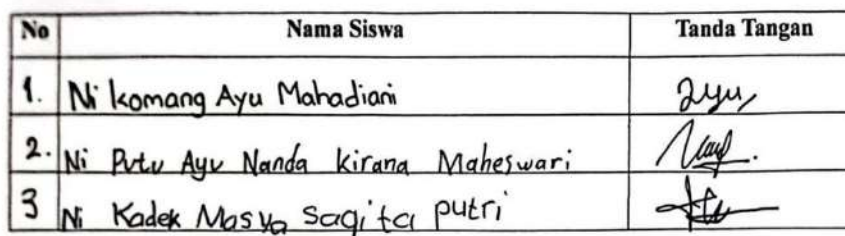 No Nama Siswa Tanda Tangan
1. Ni Komang Ayu Mahadiani Ayu
2. Ni Putu Ayu Nanda Kirana Maheswari
3 Ni Kadek Masya Sagita putri